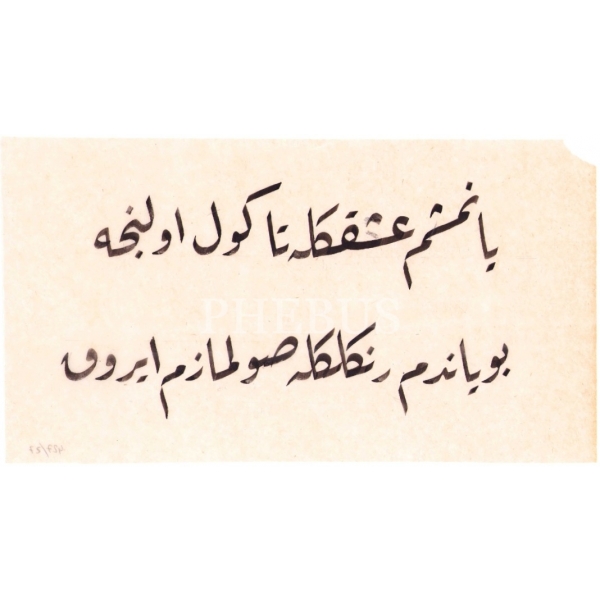 يانمشم عشقكله تا كول اولنجه
بوياندم رنكلكله صولمازم ايروق
PHEBUS